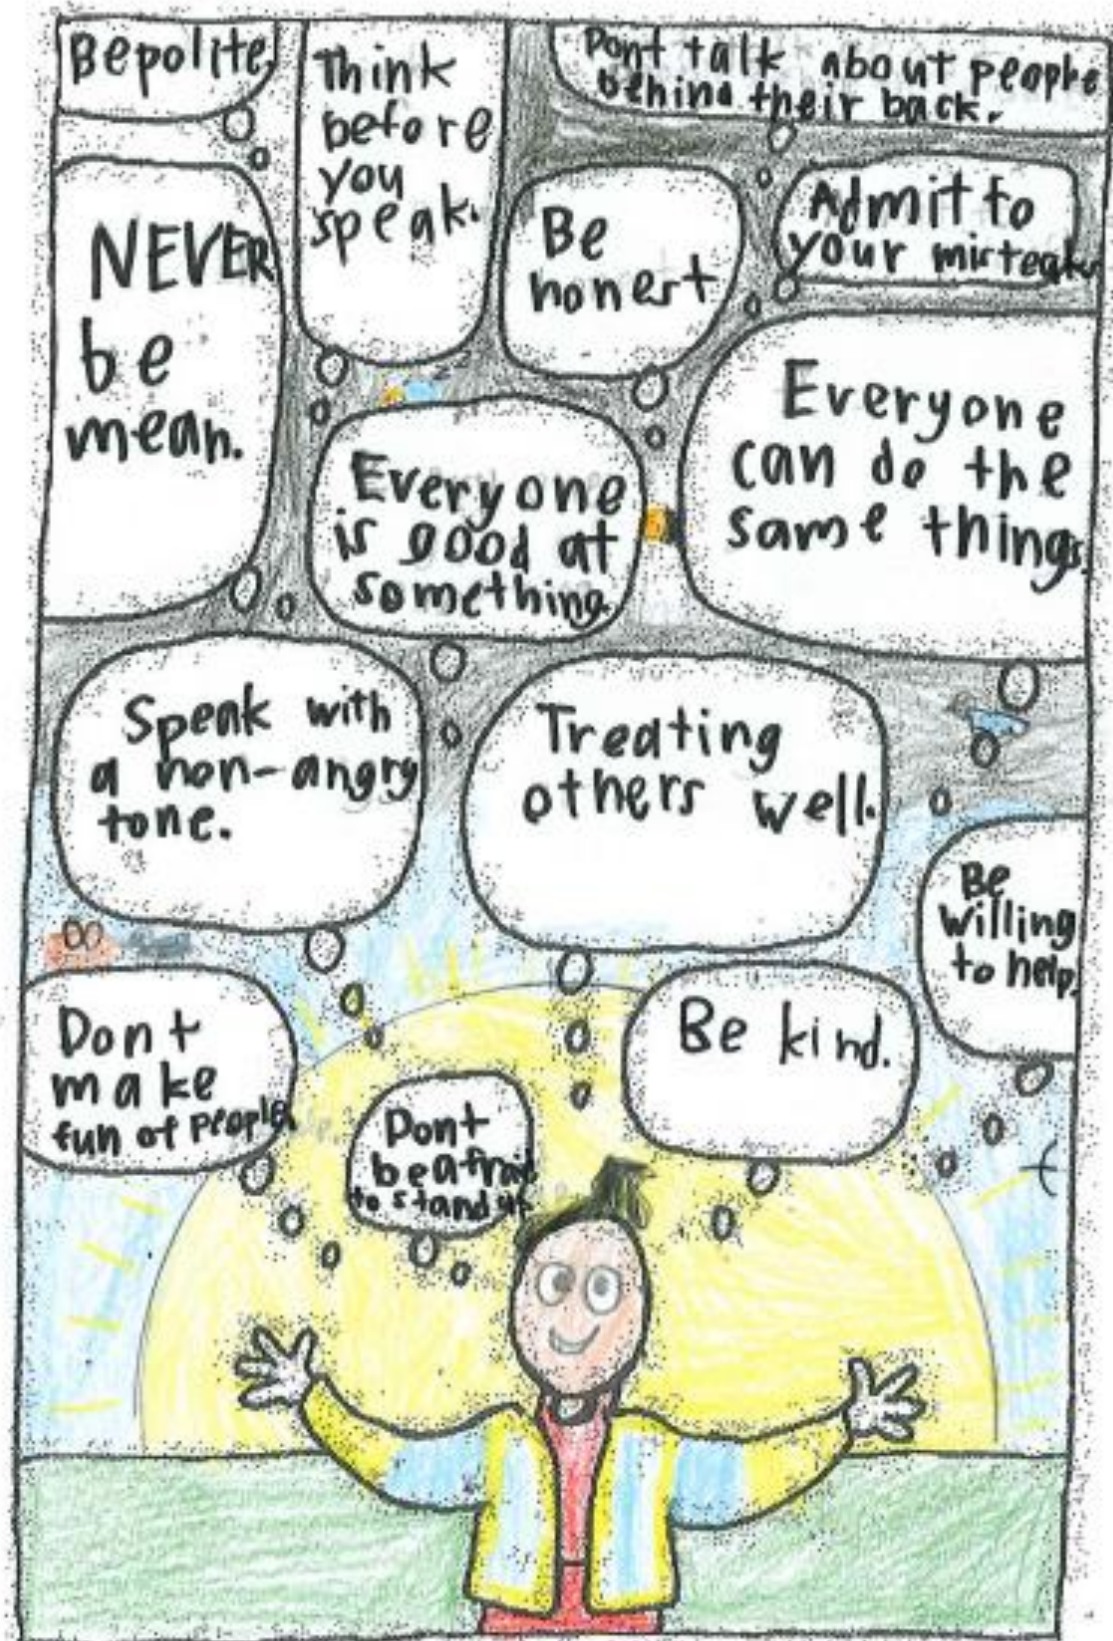 Bepolite
Think
before
you
speak.
Dont talk about people
behind their back.
NEVER
be
mean.
Be
honest
Admit to
your misteaks
Everyone
is good at
something.
Everyone
can do the
same things.
Speak with
a non-angry
tone.
Treating
others well.
Be
willing
to help.
Dont
make
fun of people.
Dont
be afraid
to stand up
Be kind.